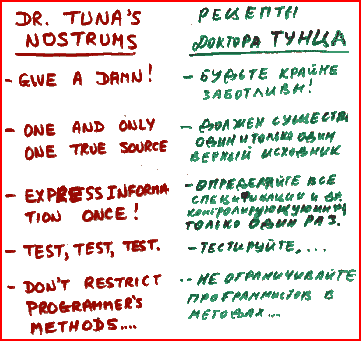 DR. TUNA'S
NOSTRUMS
- GIVE A DAMN!
- ONE AND ONLY
ONE TRUE SOURCE
- EXPRESS INFORMA
TION ONCE!
- TEST, TEST, TEST.
- DON'T RESTRICT
PROGRAMMER'S
METHODS....
РЕЦЕПТЫ
ДОКТОРА ТУНЦА
- БУДЬТЕ КРАЙНЕ
ЗАБОТЛИВЫ!
- ДОЛЖЕН СУЩЕСТВ
ОДИН И ТОЛЬКО ОДИН
ВЕРНЫЙ ИСХОДНИК
- ОПРЕДЕЛЯЙТЕ ВСЕ
СПЕЦИФИКАЦИИ И ДР.
ТОЛЬКО ОДИН РАЗ.
- ТЕСТИРУЙТЕ, ...
- НЕ ОГРАНИЧИВАЙТЕ
ПРОГРАММИСТОВ В
МЕТОДАХ...